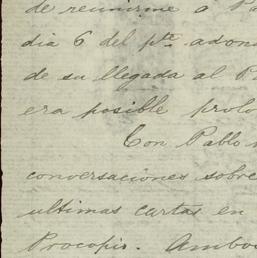 de reunirme a Pa
dia 6 del pte. adond
de su llegada al P
era posible prolo
Con Pablo
conversaciones sobre
ultimas cartas en
Procopio. Ambo